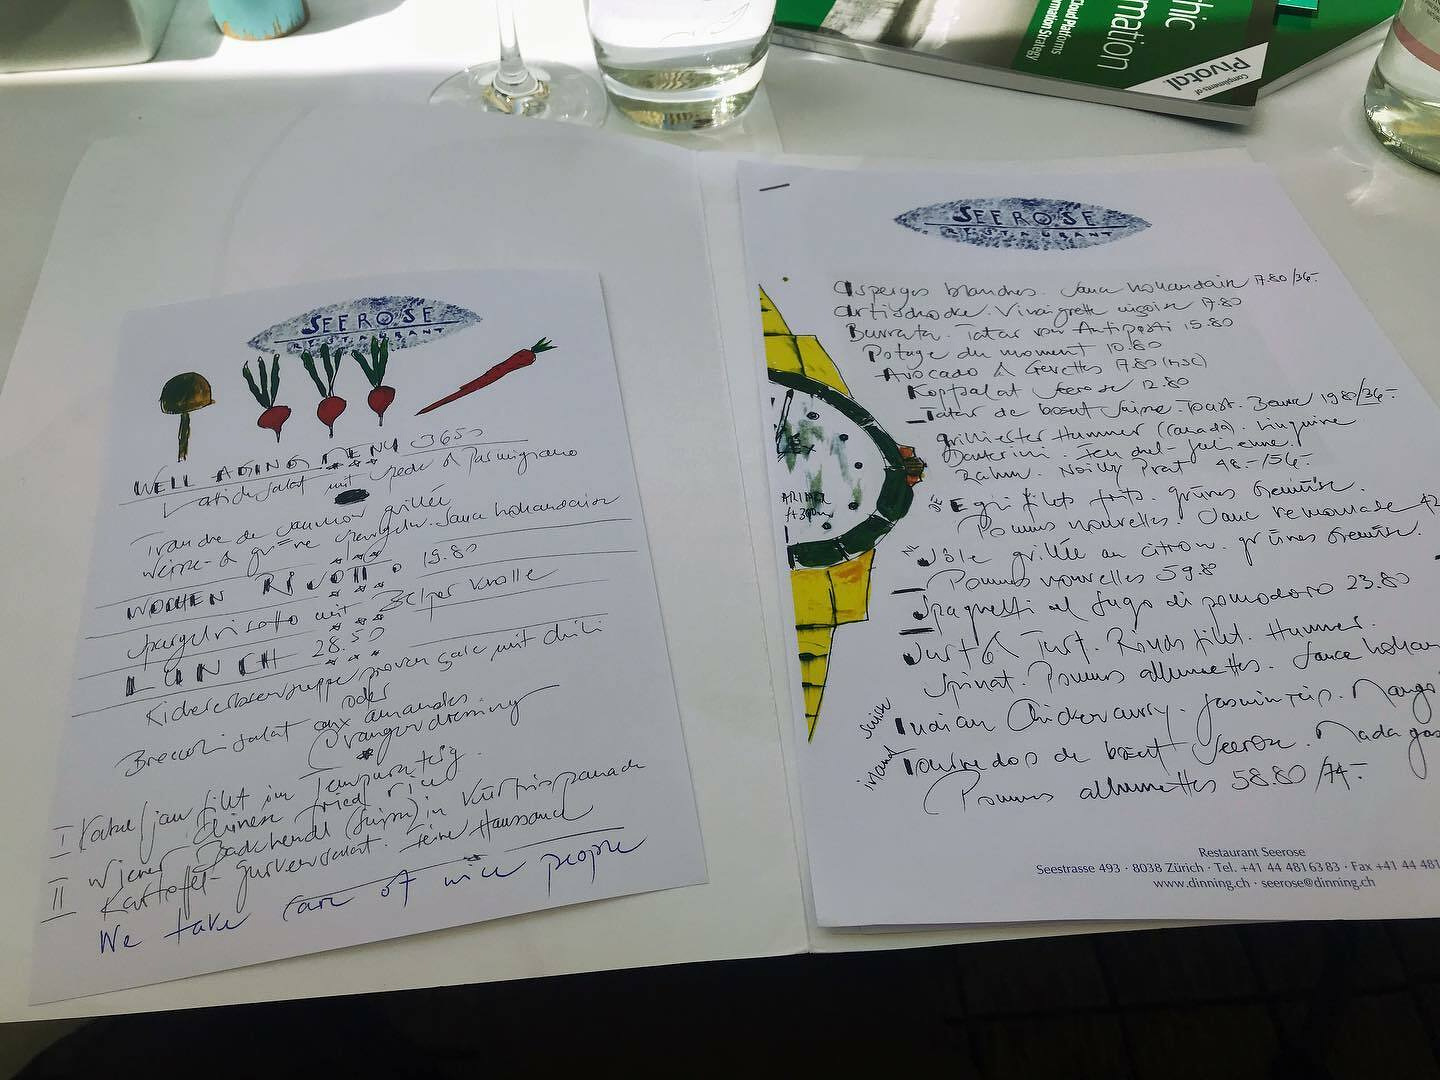 Pivotal
Compliments of
Cloud Platforms
SEEROSE
RESTAURANT
WELL AGING MENU 36.50
Lattichsalat mit Speck & Parmigiano
Tranche de saumon grillée
weisse & grüne Spargeln. Sauce hollandaise
WOCHEN RISOTTO 19.80
Spargelrisotto mit Belper Knolle
LUNCH 28.50
Kichererbsensuppe provençale mit chili
oder
Broccoli salat aux amandes
Orangendressing
I Kabeljaufilet im Tempurateig.
Chinese fried rice
II Wiener Backhendl (Suisse) in Kürbispanade
Kartoffel-Gurkensalat. feine Haussauce
We take care of nice people
SEEROSE
RESTAURANT
Asperges blanches. Sauce hollandaise 17.80/36.-
Artischocke. Vinaigrette niçoise 17.80
Burrata. Tatar von Antipasti 15.80
Potage du moment 10.80
Avocado & Crevettes 17.80 (MSC)
Kopfsalat Seerose 12.80
Tatar de boeuf Suisse. Toast. Beurre 19.80/36.-
grillierter Hummer (Canada). Linguine
Datterini. Fenchel-Julienne.
Rahm. Noilly Prat 48.-/56.-
Egli filets frits. grünes Gemüse.
Pommes nouvelles. Sauce remoulade 42
Sole grillée au citron. grünes Gemüse.
Pommes nouvelles 59.8
Spaghetti al sugo di pomodoro 23.80
Surf & Turf. Rindsfilet. Hummer.
Spinat. Pommes allumettes. Sauce hollan
Suisse Indian Chickencurry. Jasminreis. Mango
Irland Tournedos de boeuf Seerose. Madagas
Pommes allumettes 58.80/74.-
Restaurant Seerose
Seestrasse 493 · 8038 Zürich · Tel. +41 44 481 63 83 · Fax +41 44 481
www.dinning.ch · seerose@dinning.ch